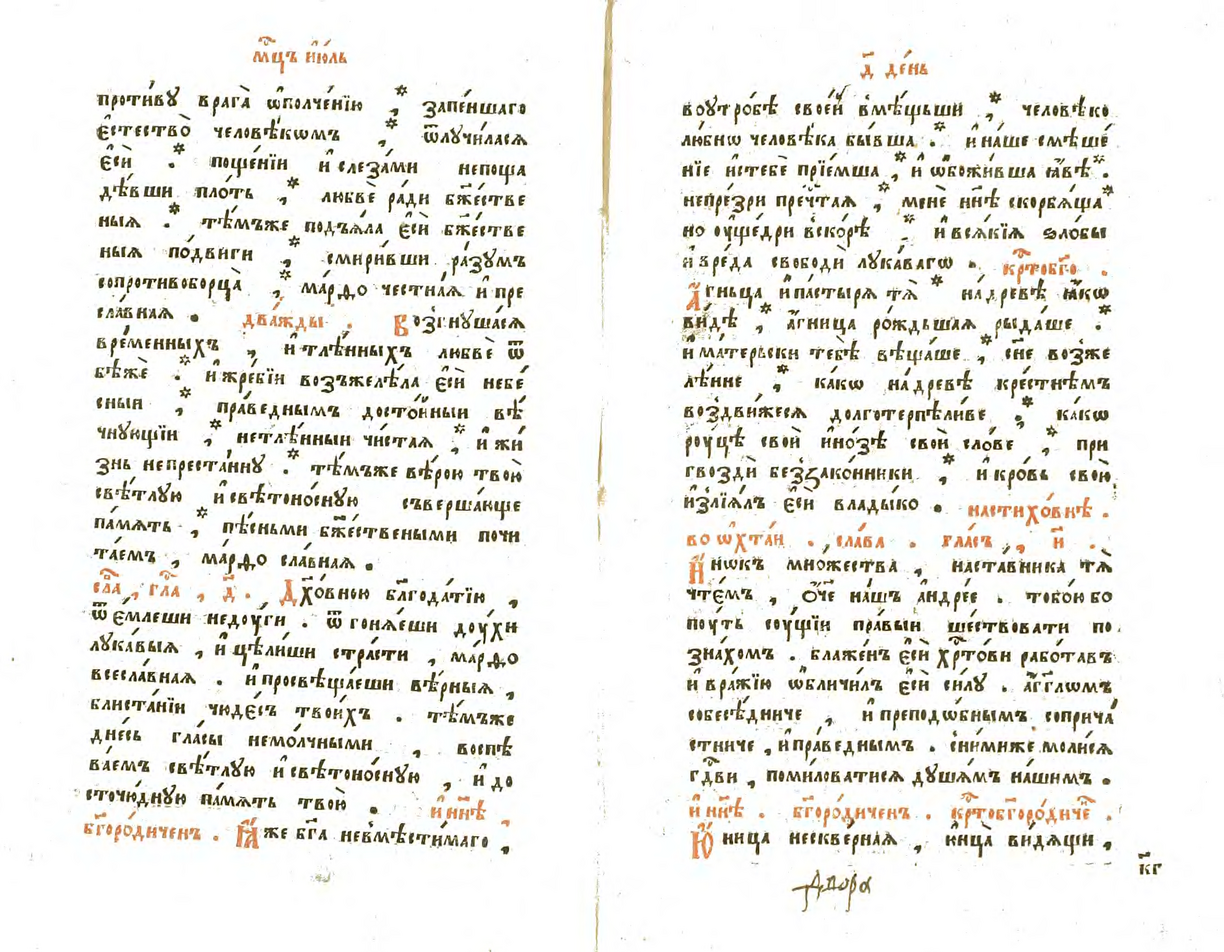 мц҃ъ ию́ль
проти́ву врага̀ ѡ҆полче́нїю , * запе́ншаго
є҆стество̀ человѣ́кѡмъ , * ѿлучи́ласѧ
є҆сѝ . * поще́нїи и҆ слеза́ми непоща
дѣ́вши пло́ть , * любвѐ ра́ди бж҃е́стве
ныѧ . * тѣ́мъже подъѧ́ла є҆сѝ бж҃е́стве
ныѧ по́двиги , * смири́вши ра́зумъ
сопротивоборца̀ , * ма́рѳо честна́ѧ и҆ пре
сла́внаѧ . два́жды . Возгнуша́сѧ
вре́менныхъ , и҆ тлѣ́нныхъ любвѐ ѿ
бѣжѐ . * и҆ жре́бїи возъжелѣ́ла є҆сѝ небе́
сныи , * пра́веднымъ досто́йныи вѣ́
чнующїи , * нетлѣ́нныи чи́стаѧ , * и҆ жи́
знь непреста́нну . * тѣ́мъже вѣ́рою твою̀
свѣ́тлую и҆ свѣтоно́сную съверша́юще
па́мѧть , * пѣ́сньми бж҃е́ствеными почи
та́емъ , ма́рѳо сла́внаѧ .
сла́ва , гла́ , д҃ . Дх҃о́вною бл҃года́тїю ,
ѿе́млеши неду́ги . ѿгонѧ́еши ду́хи
лука́выѧ , и҆ цѣли́ши стра́сти , ма́рѳо
всесла́внаѧ . и҆ просвѣща́еши вѣ́рныѧ ,
блиста́нїи чюде́съ твои́хъ . тѣ́мъже
дне́сь гла́сы немо́лчными , воспѣ
ва́емъ свѣ́тлую и҆ свѣтоно́сную , и҆ до
сточю́дную па́мѧть твою̀ . и҆ ны́нѣ ,
бг҃оро́диченъ . Ꙗ́же бг҃а невмѣсти́маго ,
д҃ де́нь
воутро́бѣ свое́й вмѣ́щьши , * человѣко
любнѡ человѣ́ка бы́вша . * и҆ на́ше смѣше́
нїе и҆стебѐ прїе́мша , * и҆ ѡ҆бо́живша ꙗ҆́вѣ * .
непре́зри пречⷭ҇таѧ , * менѐ нн҃ѣ скорбѧ́ща *
но ущедри вско́рѣ * и҆ всѧ́кїѧ ѕло́бы
и҆ вре́да свободи лука́вагѡ . крⷭ҇тобг҃о .
А҆́гньца и҆ па́стырѧ тѧ̀ * на дре́вѣ ꙗ҆́кѡ
ви́дѣ , * а҆́гница ро́ждьшаѧ рыда́ше . *
и҆ ма́терьски тебѣ̀ вѣща́ше , * сн҃е возже
лѣ́нне , * ка́кѡ на дре́вѣ кре́стнѣмъ
воздви́жесѧ долготерпѣли́ве , * ка́кѡ
ру́цѣ своѝ и҆ но́зѣ своѝ сло́ве , * при
гвоздѝ беззако́нники , * и҆ кро́вь свою̀
и҆злїѧ́лъ є҆сѝ влады́ко . настихо́внѣ .
во ѡ҆хта́и . сла́ва . гла́съ , и҃ .
И҆́нѡкъ мно́жества , наста́вника тѧ̀
чте́мъ , о҆́ч҃е на́шъ а҆ндре́е . тобо́ю бо
пу́ть су́щїи пра́выи ше́ствовати по
зна́хомъ . блаже́нъ є҆сѝ хрⷭ҇то́ви рабо́тавъ
и҆ вра́жїю ѡ҆бличи́лъ є҆сѝ си́лу . а҆́гг҃лѡмъ
собесѣ́дниче , и҆ преподѡ́бнымъ соприча́
стниче , и҆ пра́веднымъ . сни́миже моли́сѧ
гдⷭ҇ви , поми́ловатисѧ душѧ́мъ на́шимъ .
и҆ нн҃ѣ . бг҃оро́диченъ . крⷭ҇тобг҃оро́диче .
Ю҆́ница нескве́рнаѧ , ю҆нца̀ ви́дѧщи ,
к҃г